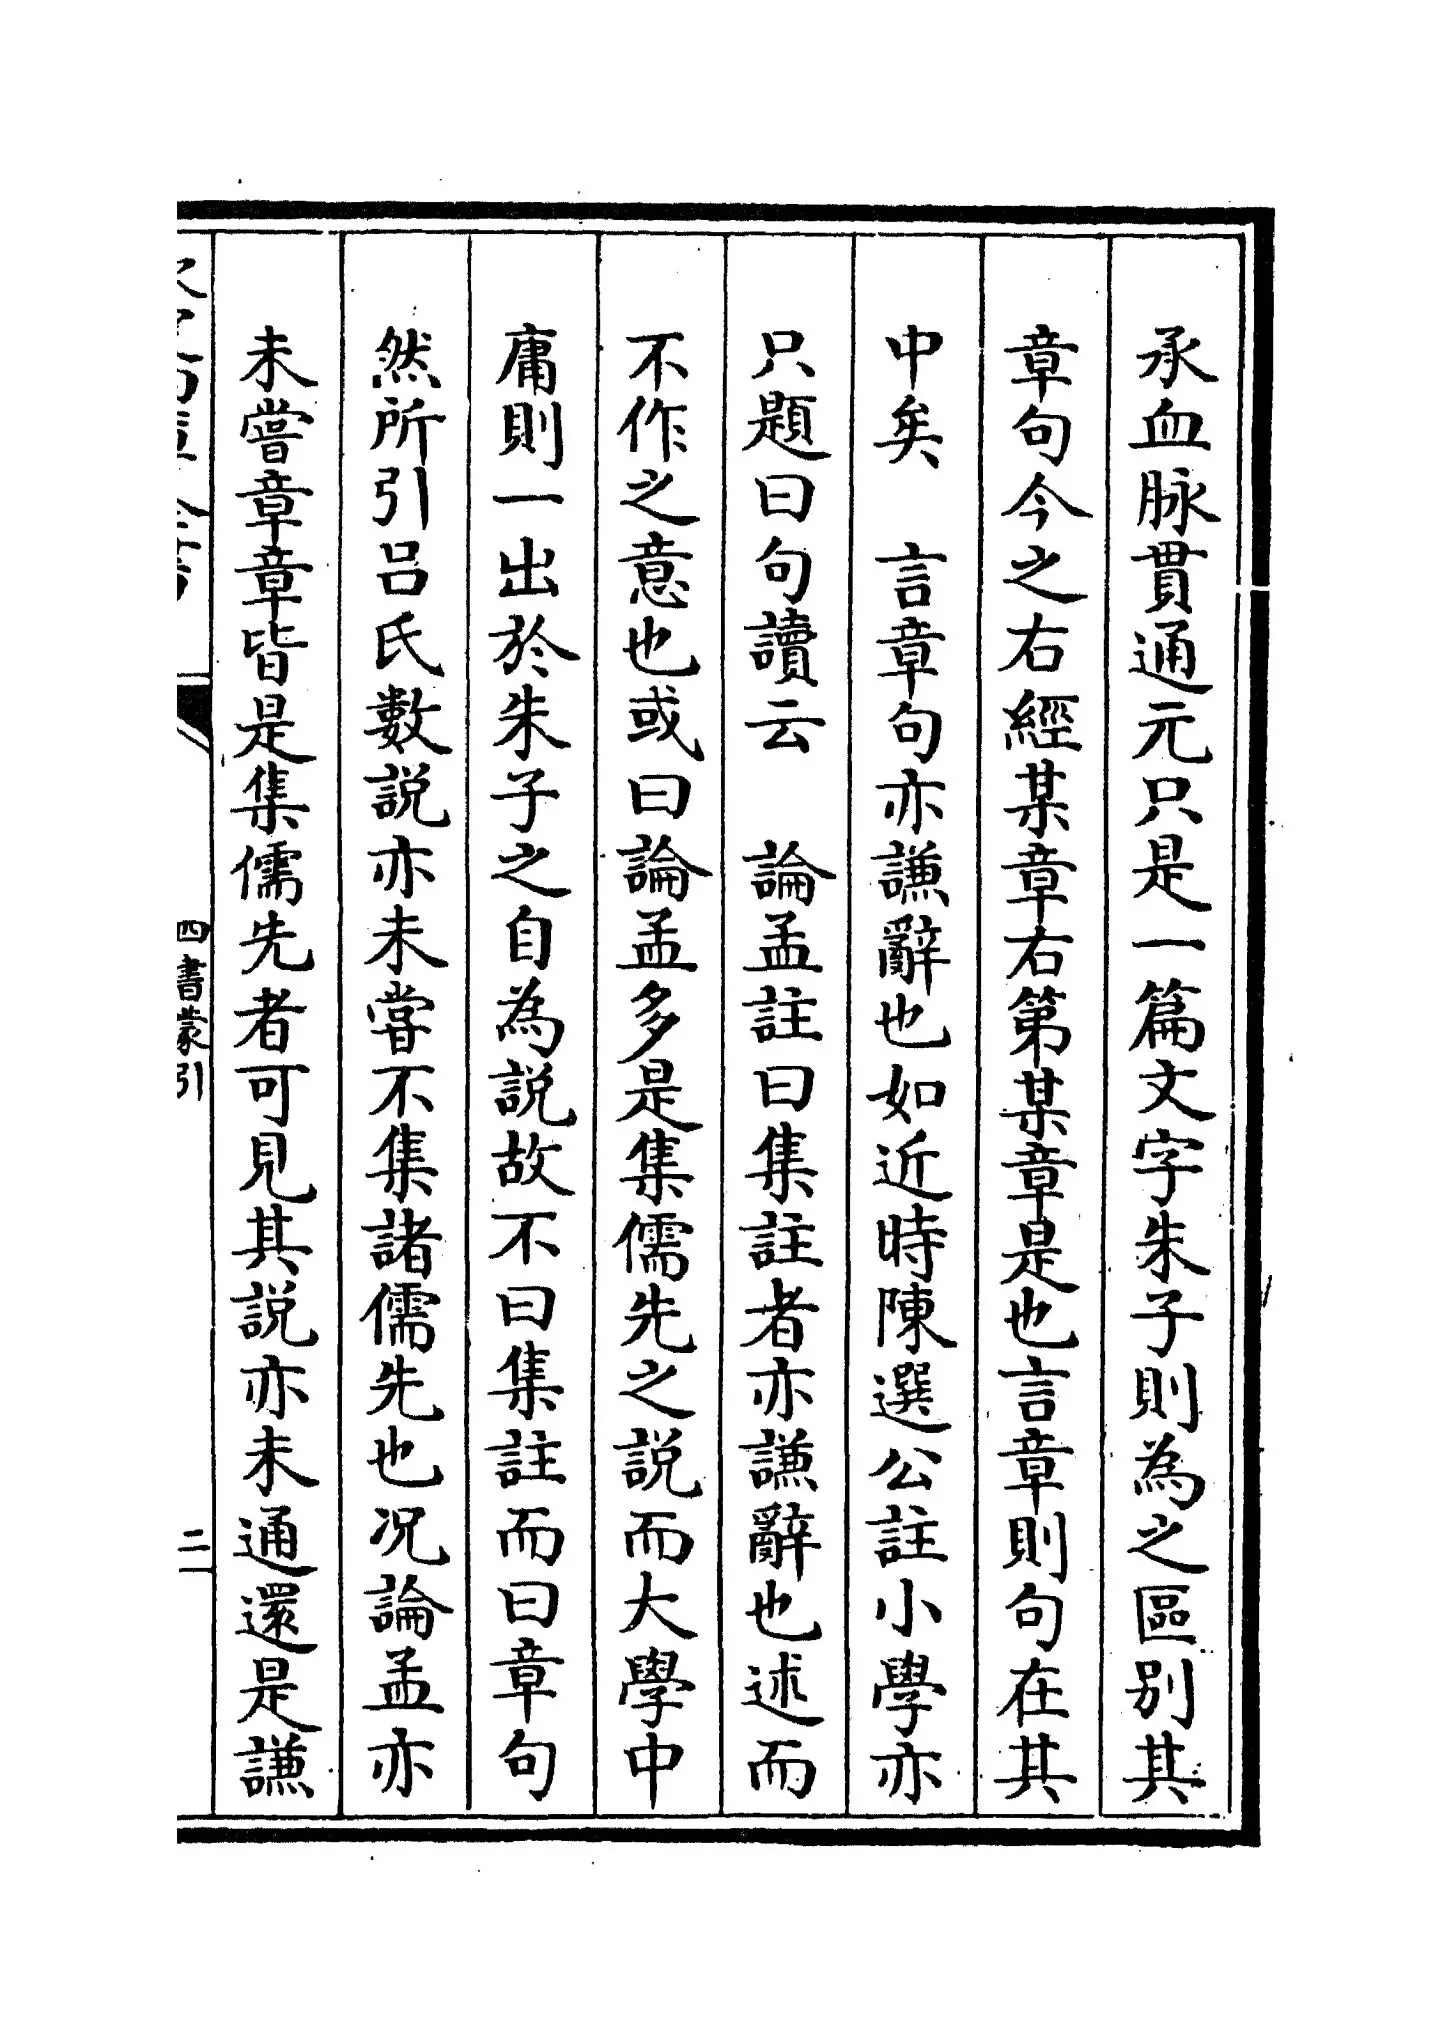 承血脉貫通元只是一篇文字朱子則為之區别其
章句今之右經某章右第某章是也言章則句在其
中矣　言章句亦謙辭也如近時陳選公註小學亦
只題曰句讀云　論孟註曰集註者亦謙辭也述而
不作之意也或曰論孟多是集儒先之説而大學中
庸則一出於朱子之自為説故不曰集註而曰章句
然所引吕氏數説亦未嘗不集諸儒先也况論孟亦
未嘗章章皆是集儒先者可見其説亦未通還是謙
四書蒙引
二